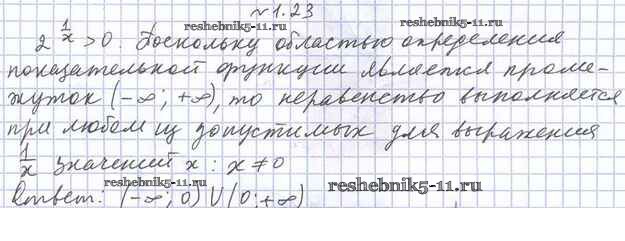 №1.23
reshebnik5-11.ru
2^(1/x) > 0. Поскольку областью определения
показательной функции является проме-
жуток (-∞; +∞), то неравенство выполняется
reshebnik5-11.ru
при любом из допустимых для выражения
1/x значений x: x ≠ 0
reshebnik5-11.ru
reshebnik5-11.ru
Ответ: (-∞; 0) ∪ (0; +∞)